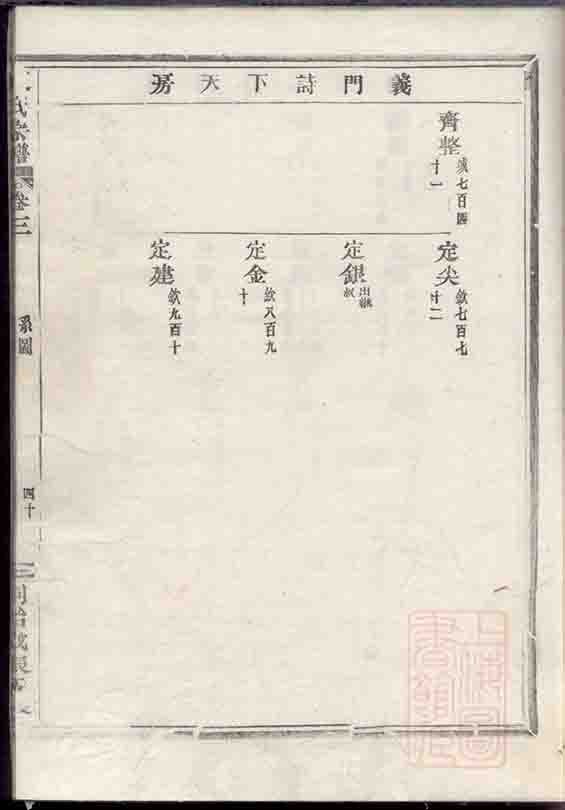 義門詩下天房
齊整 欽七百四十一
定尖 欽七百七十二
定銀 出繼
定金 欽八百九十
定建 欽九百十
氏宗譜 卷三
系圖
四十
上海圖書館藏